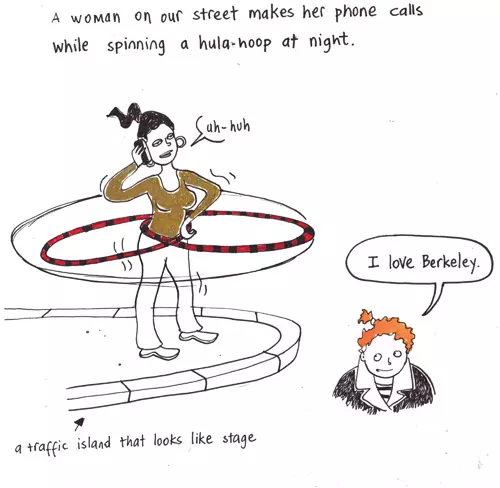 A woman on our street makes her phone calls
while spinning a hula-hoop at night.
uh-huh
I love Berkeley.
a traffic island that looks like stage